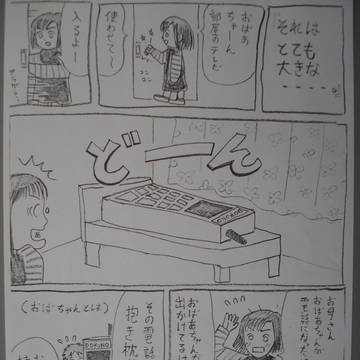 それは
とても
大きな
おばあ
ちゃーん
部屋のテレビ
使わせて〜
コンコン
入るよー
どーん
お母さん
おばあちゃんが
電話になった
おばあちゃんは
出かけてるよ
その電話
抱き枕
(おばちゃんとは)
DOKINO